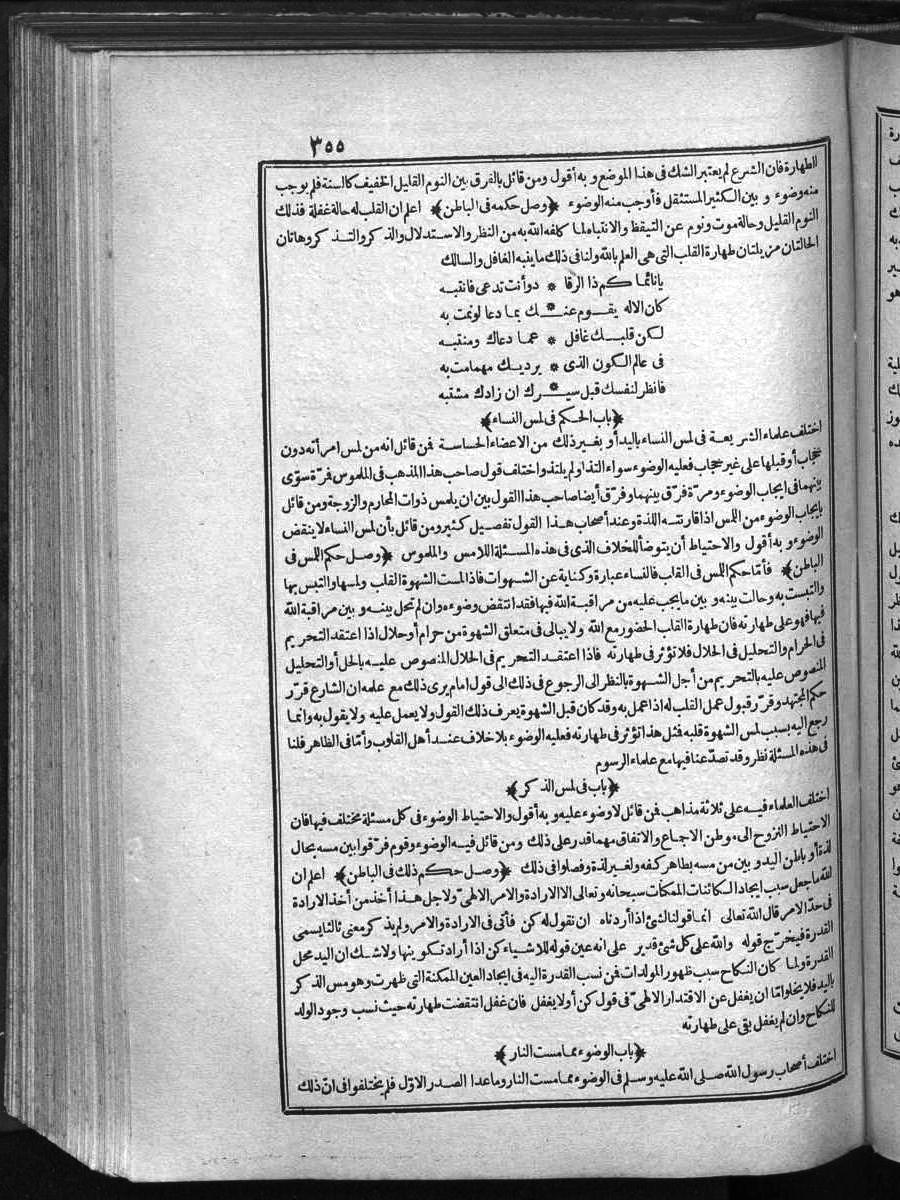 ٣٥٥
للطهارة فان الشرع لم يعتبر الشك فى هذا الموضع وبه أقول ومن قائل بالفرق بين النوم القليل الخفيف كالسنة فلم يوجب
منه وضوء و بين الكثير المستثقل فأوجب منه الوضوء ﴿وصل حكمه فى الباطن﴾ اعلم ان القلب له حالة غفلة فذلك
النوم القليل وحالة موت ونوم عن التيقظ والانتباه لما كلفه الله به من النظر والاستدلال والذكر والتذكر وهاتان
الحالتان مزيلتان طهارة القلب التى هى العلم بالله ولنا فى ذلك ما ينبه الغافل والسالك
يانائما كم ذا الرقا * دوأنت تدعى فانتبه
كان الاله يقوم عنـك * بما دعا لو نمت به
لكن قلبك غافل * عما دعاك ومنتبه
فى عالم الكون الذى * يرديك مهما مت به
فانظر لنفسك قبل سيـ * رك ان زادك مشتبه
﴿باب الحكم فى لمس النساء﴾
اختلف علماء الشريعة فى لمس النساء باليد أو بغير ذلك من الاعضاء الحساسة فمن قائل انه من لمس امرأته دون
حجاب أو قبلها على غير حجاب فعليه الوضوء سواء التذ أو لم يلتذ واختلف قول صاحب هذا المذهب فى الملموس فمرّة سوّى
بينهما فى ايجاب الوضوء ومرّة فرّق بينهما وفرّق أيضا صاحب هذا القول بين ان يلمس ذوات المحارم والزوجة ومن قائل
بايجاب الوضوء من اللمس اذا قارنته اللذة وعند أصحاب هذا القول تفصيل كثير ومن قائل بأن لمس النساء لا ينقض
الوضوء وبه أقول والاحتياط أن يتوضأ للخلاف الذى فى هذه المسئلة اللامس والملموس ﴿وصل حكم اللمس فى
الباطن﴾ فأمّا حكم اللمس فى القلب فالنساء عبارة وكناية عن الشهوات فاذا لمست الشهوة القلب ولمسها والتبس بها
والتبست به وحالت بينه و بين ما يجب عليه من مراقبة الله فيها فقد انتقض وضوءه وان لم تحل بينه و بين مراقبة الله
فيها فهو على طهارته فان طهارة القلب الحضور مع الله ولا يبالى فى متعلق الشهوة من حرام أو حلال اذا اعتقد التحريم
فى الحرام والتحليل فى الحلال فلا تؤثر فى طهارته فاذا اعتقد التحريم فى الحلال المنصوص عليه بالحل أو التحليل
المنصوص عليه بالتحريم من أجل الشهوة بالنظر الى الرجوع فى ذلك الى قول امام يرى ذلك مع علمه ان الشارع قرّر
حكم المجتهد وقرّر قبول عمل القلب له اذا عمل به وقد كان قبل الشهوة يعرف ذلك القول ولا يعمل عليه ولا يقول به وانما
رجع اليه بسبب لمس الشهوة قلبه فمثل هذا تؤثر فى طهارته فعليه الوضوء بلا خلاف عند أهل القلوب وأمّا فى الظاهر فلنا
فى هذه المسئلة نظر وقد تصدّعنا فيها مع علماء الرسوم
﴿باب فى لمس الذكر﴾
اختلف العلماء فيه على ثلاثة مذاهب فمن قائل لا وضوء عليه وبه أقول والاحتياط الوضوء فى كل مسئلة مختلف فيها فان
الاحتياط النزوح الى موطن الاجماع والاتفاق مهما قدر على ذلك ومن قائل فيه الوضوء وقوم فرّقوا بين مسه بحال
لذة أو باطن اليد و بين من مسه بظاهر كفه ولغير لذة وفصلوا فى ذلك ﴿وصل حكم ذلك فى الباطن﴾ اعلم ان
الله ما جعل سبب ايجاد الكائنات الممكنات سبحانه وتعالى الا الارادة والامر الالهىّ ولاجل هذا أخذ من أخذ الارادة
فى حدّ الامر قال الله تعالى انما قولنا لشئ اذا أردناه ان نقول له كن فأتى فى الارادة والامر ولم يذكر معنى ثالثا يسمى
القدرة فيخرّج قوله والله على كل شئ قدير على انه عين قوله للاشياء كن اذا أراد تكوينها ولا شك ان اليد محل
القدرة ولما كان النكاح سبب ظهور المولدات فمن نسب القدرة اليه فى ايجاد العين الممكنة التى ظهرت وهو مس الذكر
باليد فلا يخلو امّا ان يغفل عن الاقتدار الالهىّ فى قول كن أو لا يغفل فان غفل انتقضت طهارته حيث نسب وجود الولد
للنكاح وان لم يغفل بقى على طهارته
﴿باب الوضوء مما مست النار﴾
اختلف أصحاب رسول الله صلى الله عليه وسلم فى الوضوء مما مست النار وما عدا الصدر الاوّل فلم يختلفوا فى انّ ذلك